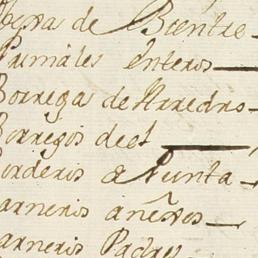 de Bientre
Primales enteros
Borrega de Hierdno
Borregos de el
Corderos a Punta
Carneros añexos
Carneros Padres